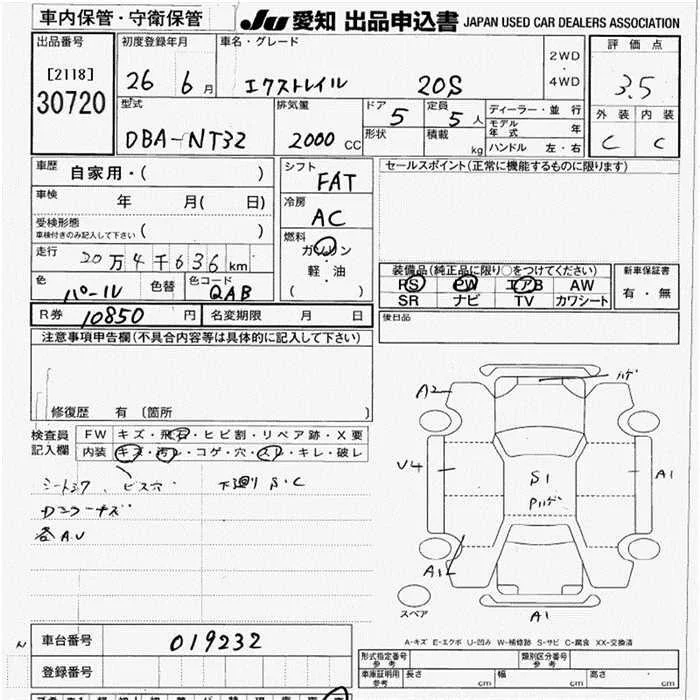 車内保管・守衛保管
JU 愛知 出品申込書 JAPAN USED CAR DEALERS ASSOCIATION
出品番号
[2118]
30720
初度登録年月
26 6 月
車名・グレード
エクストレイル 20S
2WD
・
4WD
評価点
3.5
外装 内装
C C
型式
DBA-NT32
排気量
2000 CC
ドア 5
定員 5 人
形状
積載 kg
ディーラー・並行
モデル年式 年
ハンドル 左・右
車歴 自家用・( )
車検 年 月( 日)
受検形態
車検付きのみ記入して下さい ( )
走行 20万4千636km
色 パール 色替 色コード QAB
シフト
FAT
冷房
AC
燃料
ガソリン
軽・油
( )
セールスポイント(正常に機能するものに限ります)
装備品(純正品に限り○をつけてください)
PS PW エアB AW
SR ナビ TV カワシート
新車保証書
有・無
R券 10850 円 名変期限 月 日
後日品
注意事項申告欄(不具合内容等は具体的に記入して下さい)
修復歴 有 〔箇所 〕
検査員
記入欄
FW キズ・飛石・ヒビ割・リペア跡・X要
内装 キズ・汚レ・コゲ・穴・スレ・キレ・破レ
ビス穴 下廻り S・C
各A.U
A2
V4
A1
S1
A1
スペア
A-キズ E-エクボ U-凹み W-補修跡 S-サビ C-腐食 XX-交換済
車台番号 019232
登録番号
型式指定番号
参考
類別区分番号
参考
車庫証明用
参考
長さ cm 幅 cm 高さ cm